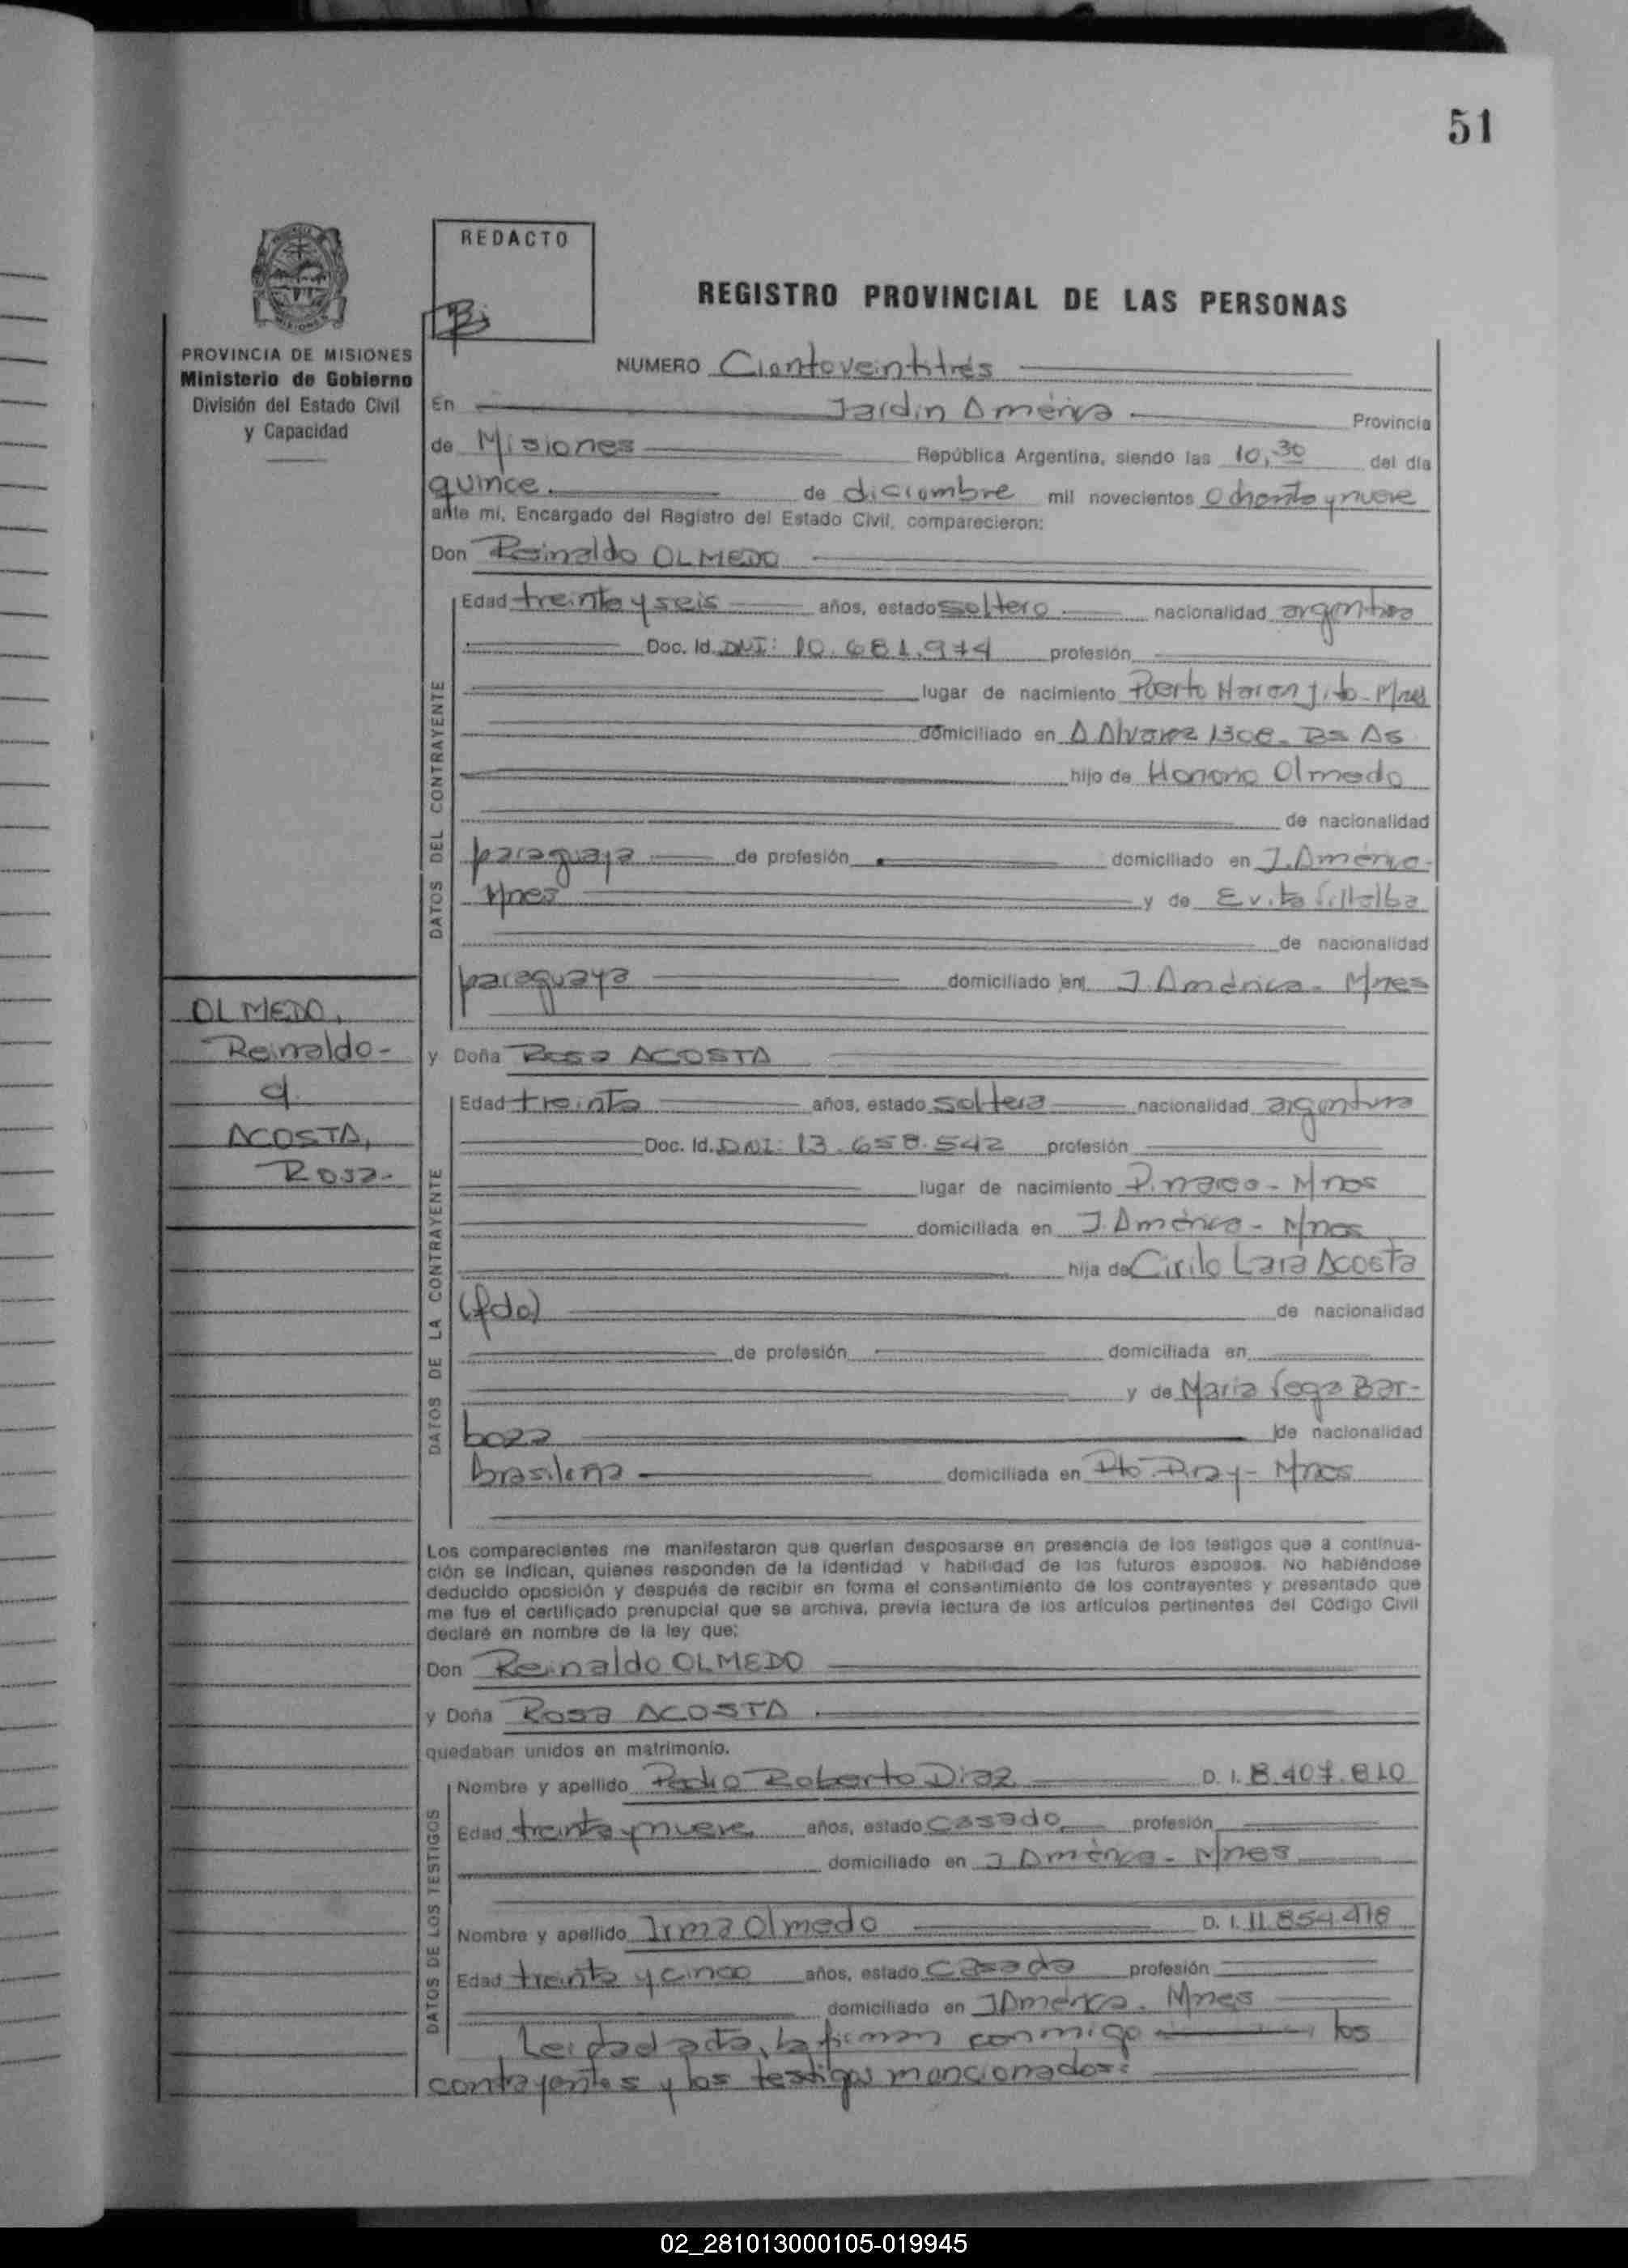 51
REDACTO
REGISTRO PROVINCIAL DE LAS PERSONAS
PROVINCIA DE MISIONES
Ministerio de Gobierno
División del Estado Civil
y Capacidad
NUMERO Cientoveintitrés
En Jardin América Provincia
de Misiones República Argentina, siendo las 10,30 del día
quince. de diciembre mil novecientos ochenta y nueve
ante mí, Encargado del Registro del Estado Civil, comparecieron:
Don Reinaldo OLMEDO
DATOS DEL CONTRAYENTE
Edad treinta y seis años, estado soltero nacionalidad argentina
Doc. Id. DNI: 10.681.974 profesión
lugar de nacimiento Puerto Naranjito - Mnes
domiciliado en A Alvarez Bs As
hijo de Honorio Olmedo
de nacionalidad
paraguaya de profesión domiciliado en J. América -
Mnes y de Evita Villalba
de nacionalidad
paraguaya domiciliado en J. América - Mnes
OLMEDO,
Reinaldo -
c/.
ACOSTA,
Rosa -
y Doña Rosa ACOSTA
DATOS DE LA CONTRAYENTE
Edad treinta años, estado soltera nacionalidad argentina
Doc. Id. DNI: 13.658.542 profesión
lugar de nacimiento - Mnes
domiciliada en J. América - Mnes
hija de Cirilo Lara Acosta
(fdo) de nacionalidad
de profesión domiciliada en
y de Maria Vega Bar-
boza de nacionalidad
brasileña domiciliada en Pto Piray - Mnes
Los comparecientes me manifestaron que querían desposarse en presencia de los testigos que a continua-
ción se indican, quienes responden de la identidad y habilidad de los futuros esposos. No habiéndose
deducido oposición y después de recibir en forma el consentimiento de los contrayentes y presentado que
me fue el certificado prenupcial que se archiva, previa lectura de los artículos pertinentes del Código Civil
declaré en nombre de la ley que:
Don Reinaldo OLMEDO
y Doña Rosa ACOSTA
quedaban unidos en matrimonio.
DATOS DE LOS TESTIGOS
Nombre y apellido Pedro Roberto Diaz D. I. 8.407.810
Edad treinta y nueve años, estado casado profesión
domiciliado en J América - Mnes
Nombre y apellido Irma Olmedo D. I. 11.854.418
Edad treinta y cinco años, estado casada profesión
domiciliado en J América. Mnes
Leida el acta, la firman conmigo los
contrayentes y los testigos mencionados:
02_281013000105-019945